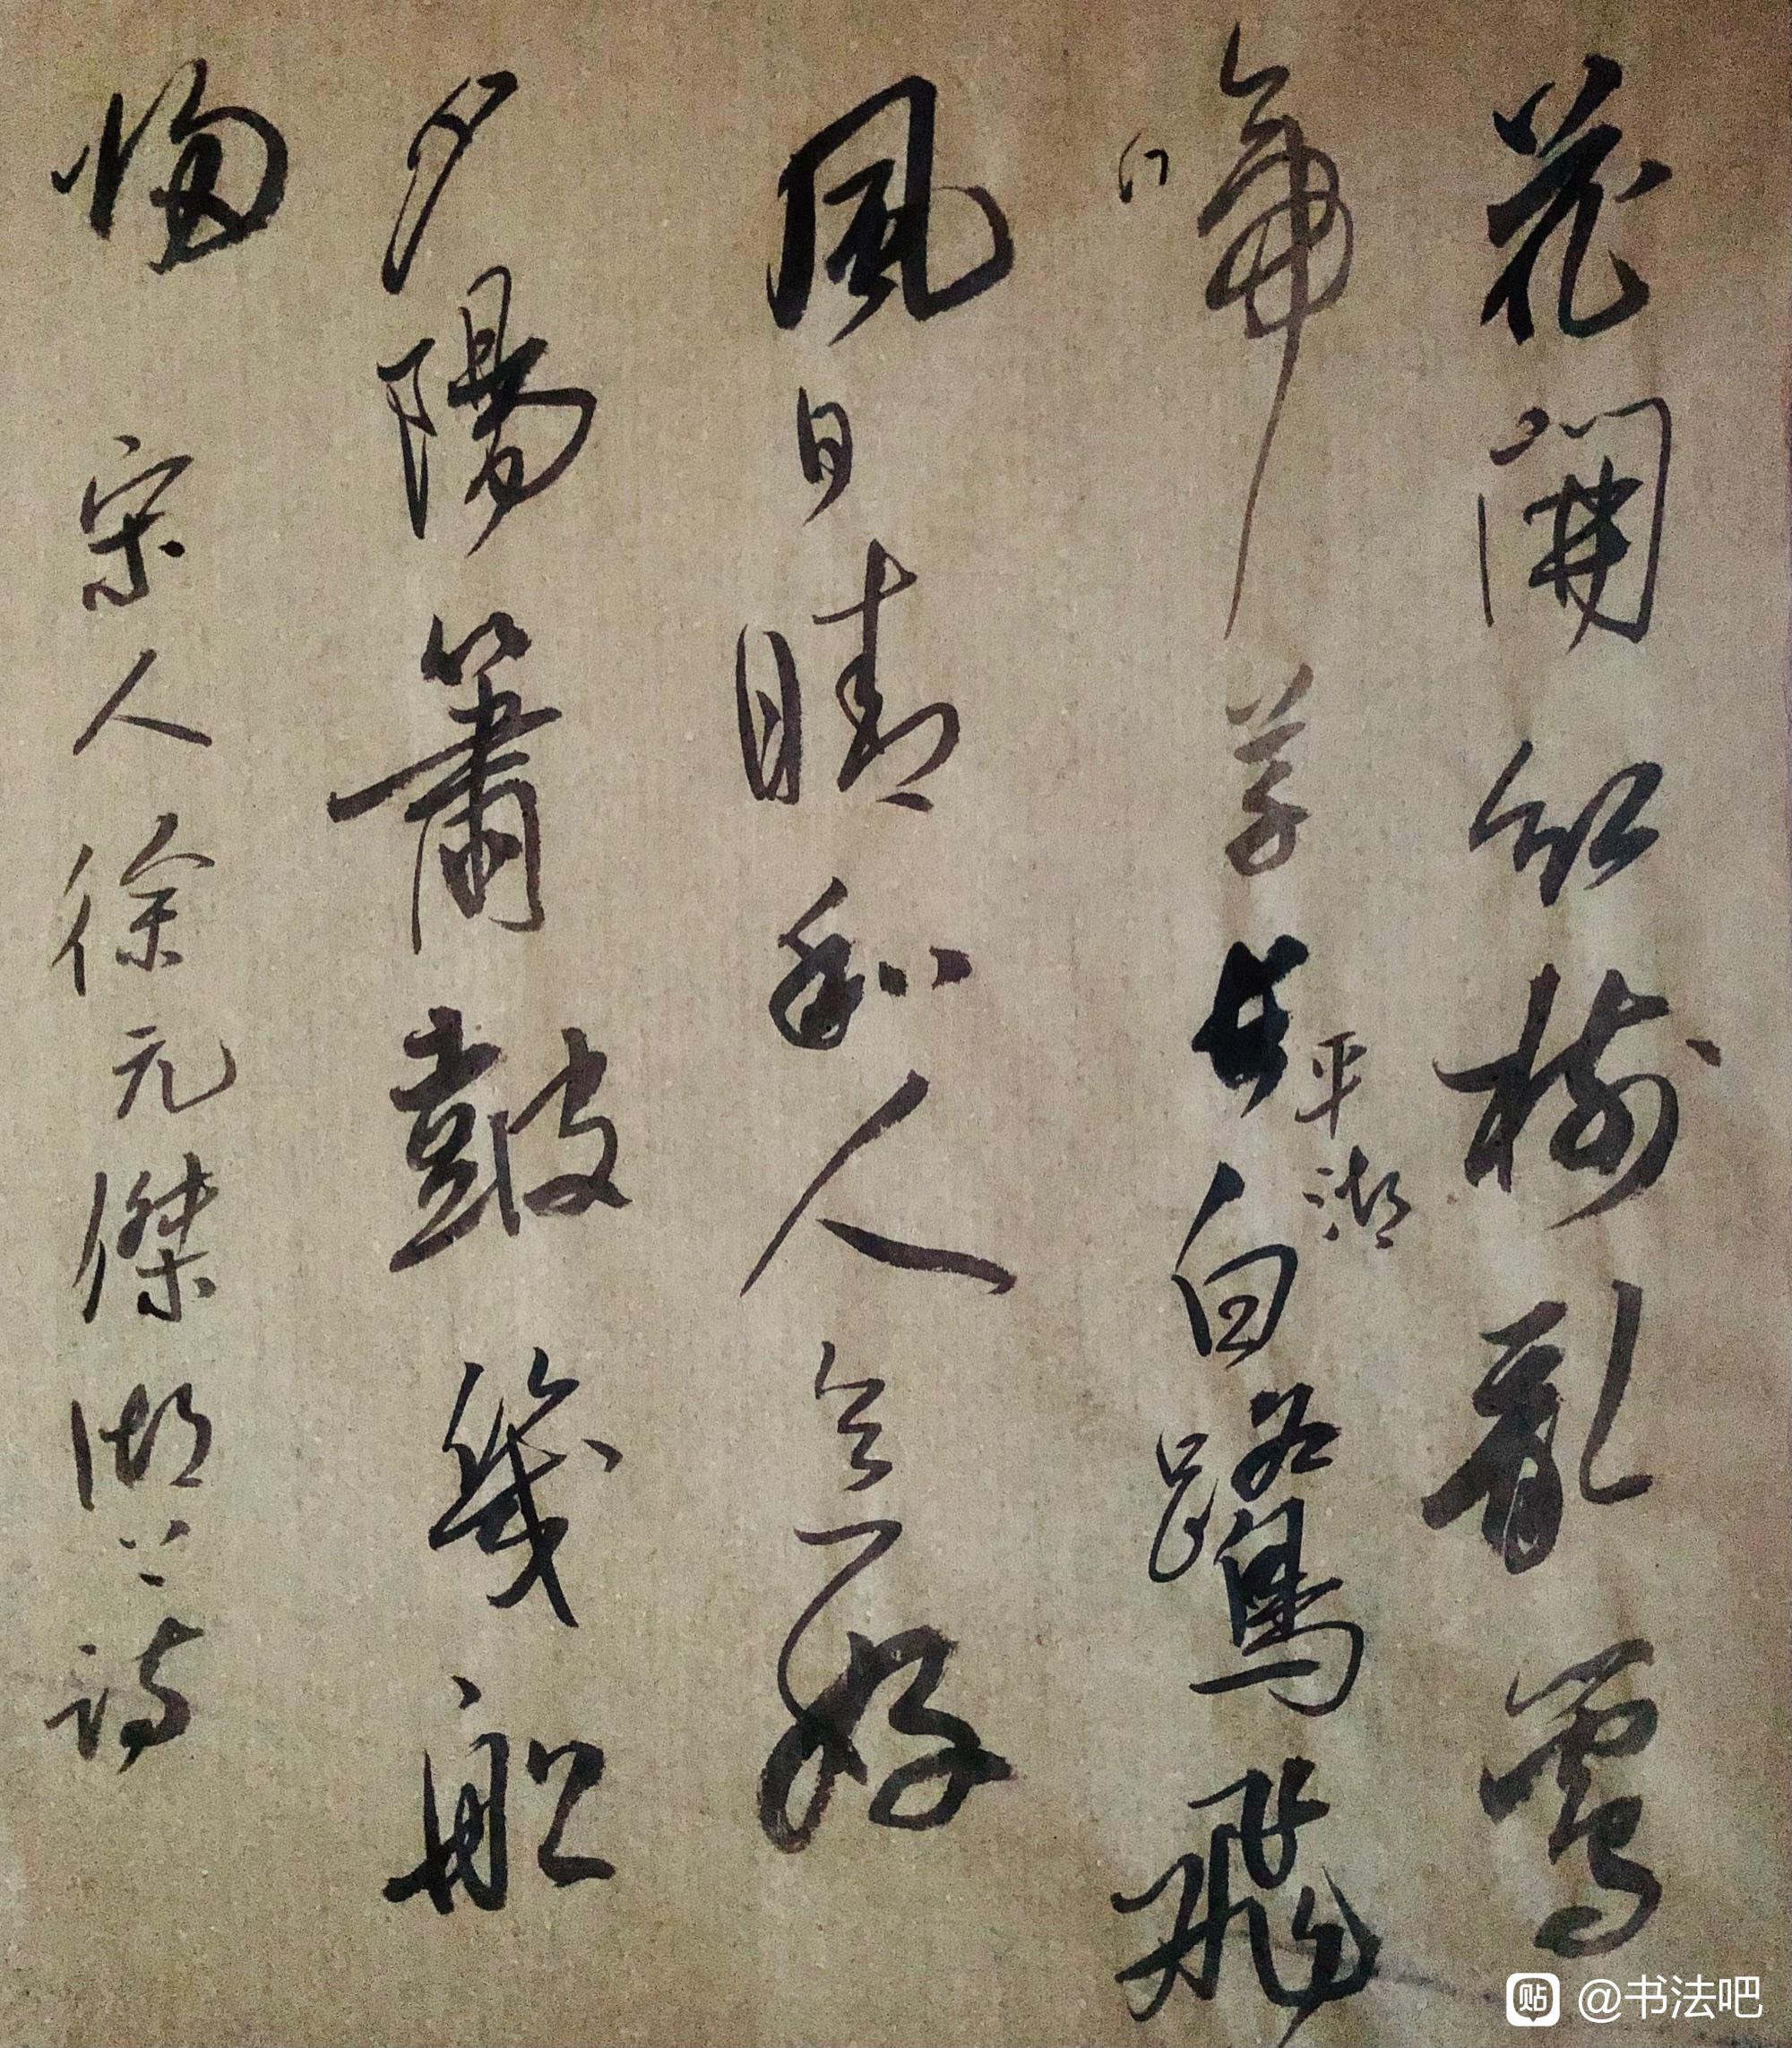 花開紅樹亂鶯
啼草長平湖白鷺飛
風日晴和人意好
夕陽簫鼓幾船
歸 宋人徐元傑湖上詩
貼 @书法吧